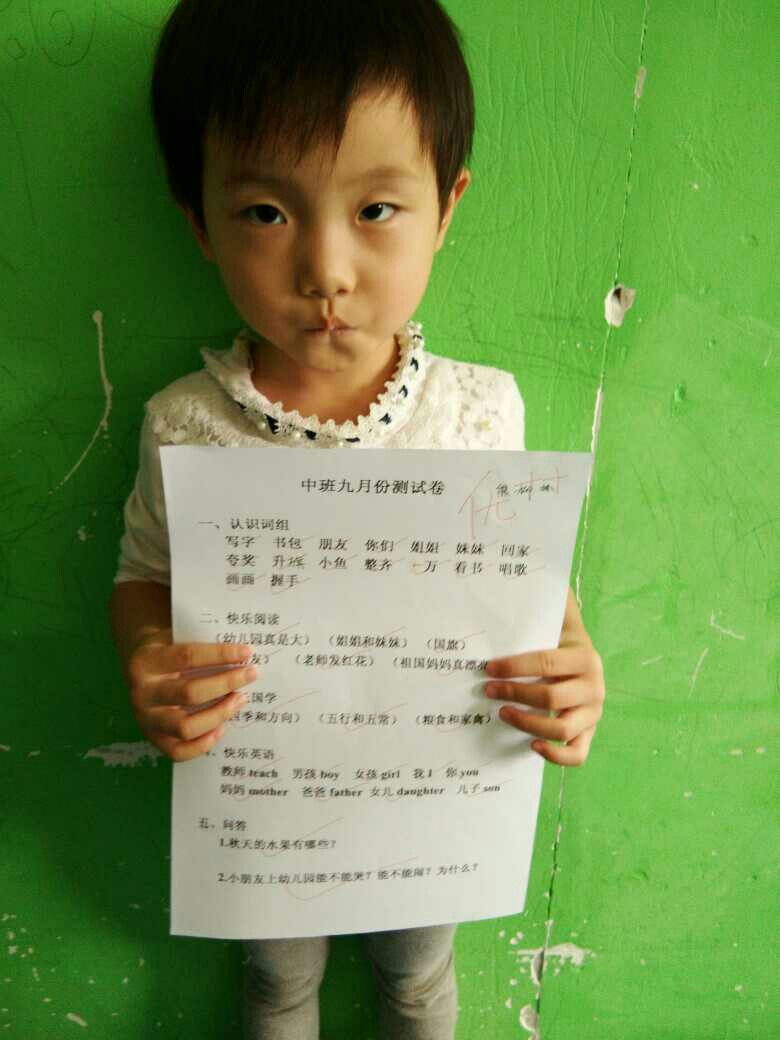 中班九月份测试卷
优
一、认识词组
写字 书包 朋友 你们 姐姐 妹妹 回家
夸奖 升旗 小鱼 整齐 一万 看书 唱歌
画画 握手
二、快乐阅读
（幼儿园真是大） （姐姐和妹妹） （国旗）
友） （老师发红花） （祖国妈妈真漂亮
国学
四季和方向） （五行和五常） （粮食和家禽）
、快乐英语
教师 teach 男孩 boy 女孩 girl 我 I 你 you
妈妈 mother 爸爸 father 女儿 daughter 儿子 son
五、问答
1.秋天的水果有哪些？
2.小朋友上幼儿园能不能哭？能不能闹？为什么？